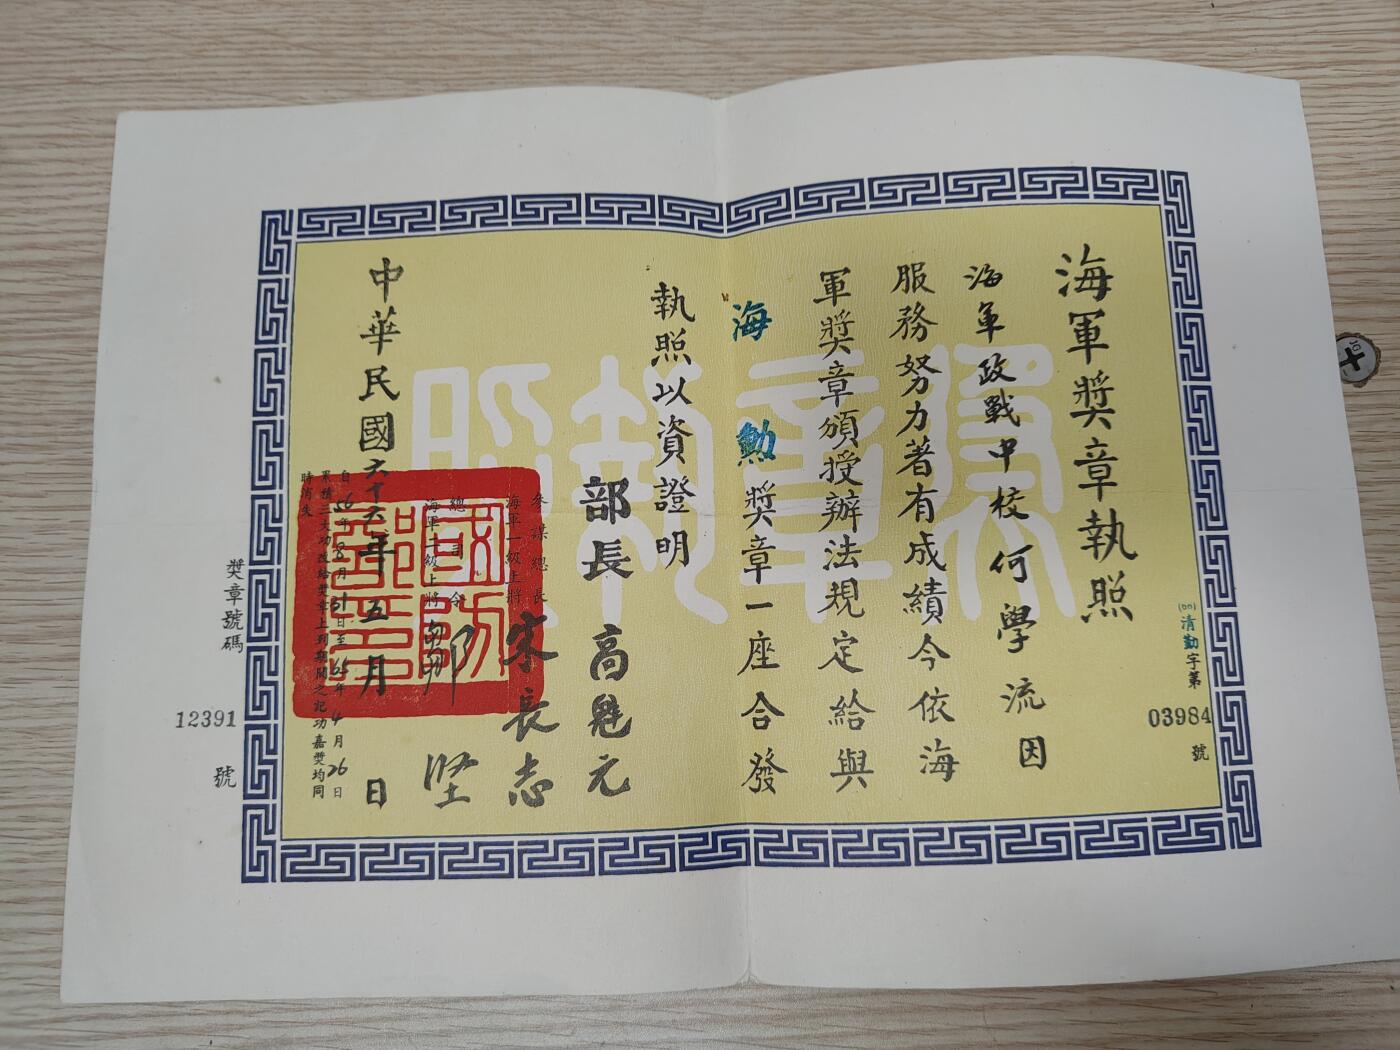 海軍獎章執照
(66)清勤字第03984號
海軍政戰中校何學流因
服務努力著有成績今依海
軍獎章頒授辦法規定給與
海勳獎章一座合發
執照以資證明
部長高魁元
參謀總長
海軍一級上將宋長志
總司令
海軍二級上將鄒堅
中華民國六十六年五月日
自56年8月31日至65年4月26日
累積二大功改給獎章上列期間之記功嘉獎均同
時消失
獎章號碼12391號
獎章執照
國防部印